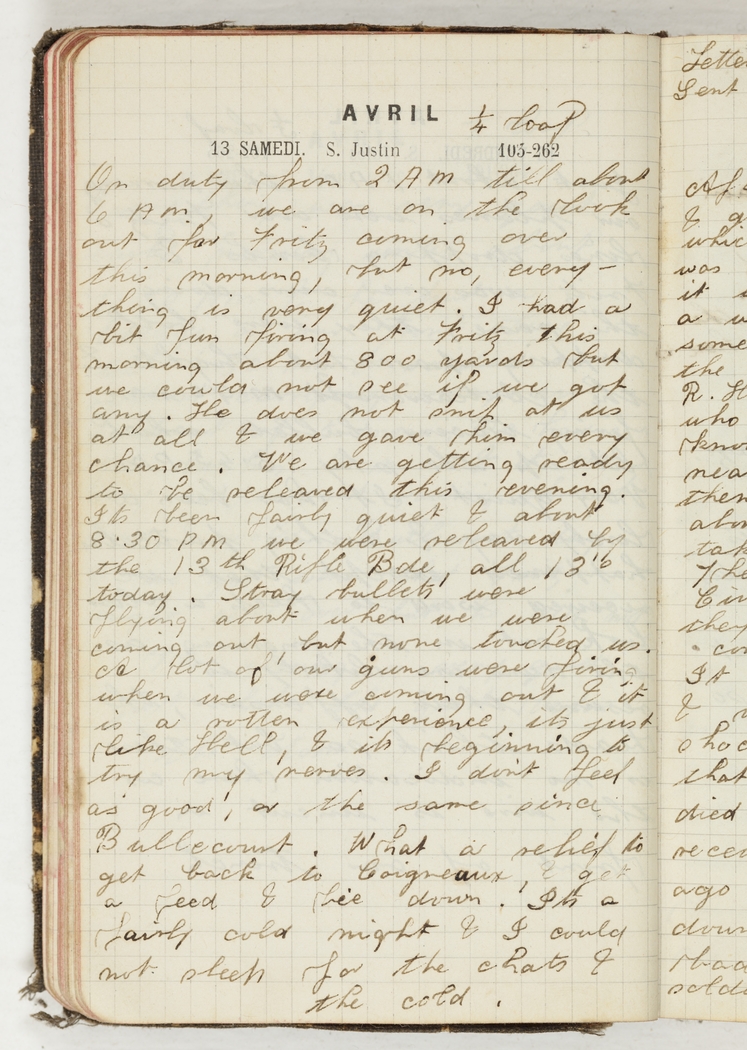 AVRIL ¼ loaf
13 SAMEDI. S. Justin 103-262
On duty from 2 AM till about
6 AM, we are on the look
out for Fritz coming over
this morning, but no, every-
thing is very quiet. I had a
bit fun firing at Fritz this
morning about 800 yards but
we could not see if we got
any. He does not snip at us
at all & we gave him every
chance. We are getting ready
to be releaved this evening.
Its been fairly quiet & about
8.30 PM we were releaved by
the 13th Rifle Bde, all 13's
today. Stray bullets were
flying about when we were
coming out, but none touched us.
A lot of our guns were firing
when we were coming out & it
is a rotten experience, its just
like Hell, & its beginning to
try my nerves. I dont feel
as good, or the same since
Bullecourt. What a relief to
get back to Coigneaux, & get
a feed & lie down. Its a
fairly cold night & I could
not sleep for the chats &
the cold.
Sent
&
was
it
a
some
the
R.
who
then
they
It
&
that
died
ago